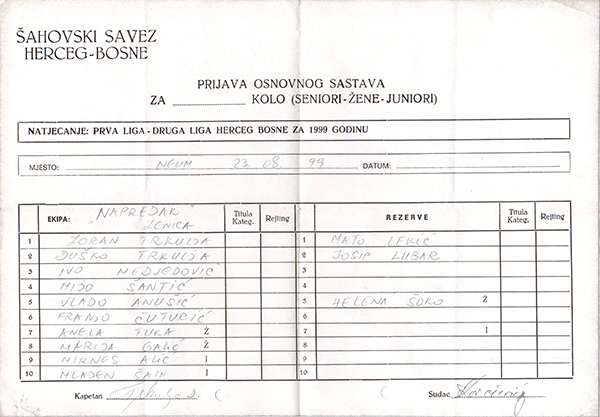 ŠAHOVSKI SAVEZ
HERCEG-BOSNE
PRIJAVA OSNOVNOG SASTAVA
ZA KOLO (SENIORI-ŽENE-JUNIORI)
NATJECANJE: PRVA LIGA - DRUGA LIGA HERCEG BOSNE ZA 1999 GODINU
MJESTO: NEUM 23. 08. 99 DATUM:
EKIPA: "NAPREDAK" ZENICA Titula Kateg. Rejting REZERVE Titula Kateg. Rejting
1 ZORAN TRKULJA 1 MATO LEKIĆ
2 DUŠKO TRKULJA 2 JOSIP LUBAR
3 IVO NEDJEDOVIĆ 3
4 MIJO ŠANTIĆ 4
5 VLADO ANUŠIĆ 5 HELENA ŠOKO Ž
6 FRANJO ČUTURIĆ 6
7 ANELA TUKA Ž 7 J
8 MARIJA GALIĆ Ž 8
9 MIRNES ALIĆ J 9
10 MLADEN ŠAIN J 10
Kapetan Sudac